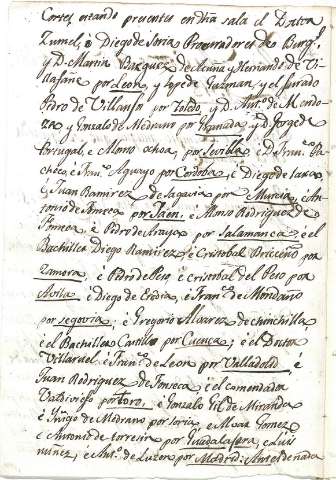 Cortes estando presentes en dha sala el Doctor
Zumel, é Diego de Soria Procuradores de Burgs.
y D. Martin Vazquez de Acuña y Hernando de Vi
llafañe por Leon, y Lope de Guzman, y el Jurado
Pedro de Villa por Toledo, y D. Antº. de Mendo-
za, y Gonzalo de Medrano por Granada, y D. Jorge de
Portugal, é Alonso ochoa, por Sevilla é D. Franco. Pa
checo, é Franco. Aguayo por Cordoba, é Diego de
é Juan Ramirez de Segavia por Murcia, é An-
tonio de Fonseca por Jaen, é Alonso Rodriguez de
Fonseca é Pedro de Anaya por Salamanca é el
Bachiller Diego Ramirez, é Cristobal Briceño por
Zamora, é Pedro del Peso é cristobal del Peso por
Avila é Diego de Eredia, é Franco. de Mendano
por segovia, é Gregorio Alvarez de chinchilla
é el Bachiller Castillo por Cuenca; é el Doctor
Villaroel é Franco. de Leon por Valladolid é
Juan Rodriguez de Fonseca é el comendador
Valdivieso por Toro, é Gonzalo Gil de Miranda
é Yñigo de Medrano por Soria, é Alvar Gomez
é Antonio de torreira por Guadalajara, é Luis
nuñez, é Antº. de Luzero por Madrid: Ante deñada